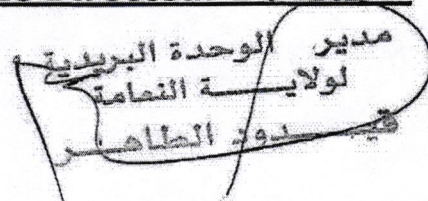 مدير الوحدة البريدية
لولايـــــة النعامة
قيـــدود الطاهـــر